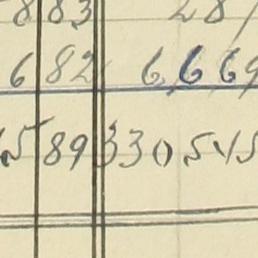 883 287
682 6669
4589 330545